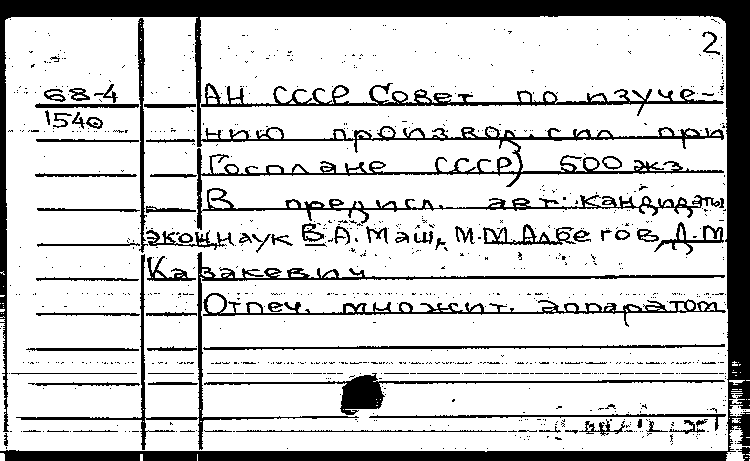 2
68-4 АН СССР Совет по изуче-
1540
нию производ. сил при
Госплане СССР) 500 экз.
В предисл. авт.: кандидаты
экон. наук В.А. Маш, М.М. Албегов, Д.М.
Казакевич
Отпеч. множит. аппаратом